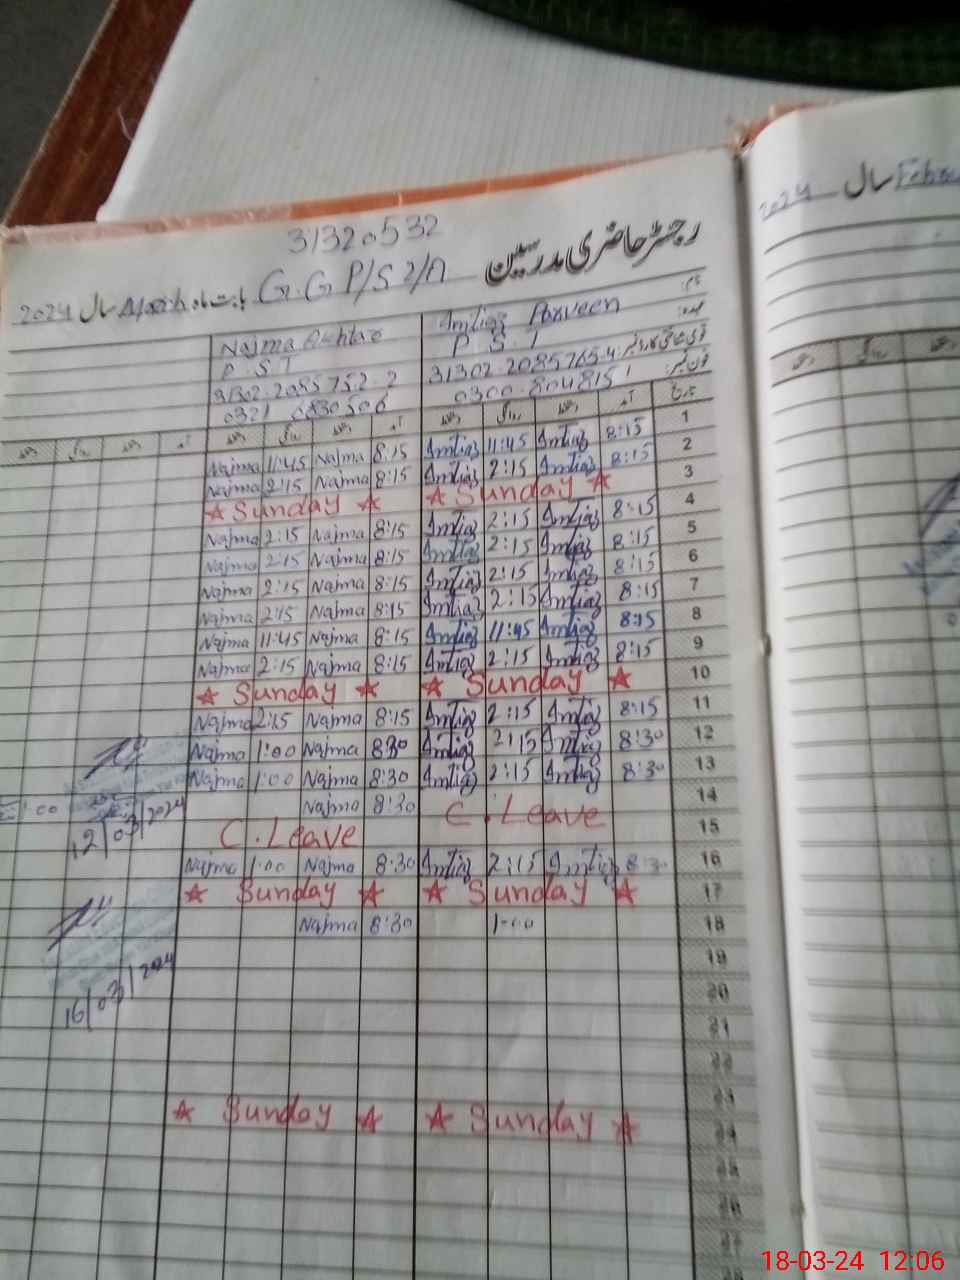 31320532
رجسٹر حاضری مدرسین
G.G P/S 2/A بابت ماہ March سال 2024
2024 سال
نام:
Imtiaz Parveen
Najma Akhtar
عہدہ:
P S T
P.ST
قومی شناختی کارڈ نمبر:
31302.2085765.4
31302.2055752.2
فون نمبر:
0300.8048151
0321 6830506
تاریخ آمد دستخط روانگی دستخط آمد دستخط روانگی دستخط آمد دستخط روانگی دستخط
Najma 11:45 Najma 8:15 Imtiaz 11:45 Imtiaz 8:15 1
Najma 2:15 Najma 8:15 Imtiaz 2:15 Imtiaz 8:15 2
★ Sunday ★ ★ Sunday ★ 3
Najma 2:15 Najma 8:15 Imtiaz 2:15 Imtiaz 8:15 4
Najma 2:15 Najma 8:15 Imtiaz 2:15 Imtiaz 8:15 5
Najma 2:15 Najma 8:15 Imtiaz 2:15 Imtiaz 8:15 6
Najma 2:15 Najma 8:15 Imtiaz 2:15 Imtiaz 8:15 7
Najma 11:45 Najma 8:15 Imtiaz 11:45 Imtiaz 8:15 8
Najma 2:15 Najma 8:15 Imtiaz 2:15 Imtiaz 8:15 9
★ Sunday ★ ★ Sunday ★ 10
Najma 2:15 Najma 8:15 Imtiaz 2:15 Imtiaz 8:15 11
Najma 1:00 Najma 8:30 Imtiaz 2:15 Imtiaz 8:30 12
Najma 1:00 Najma 8:30 Imtiaz 2:15 Imtiaz 8:30 13
1:00 Najma 8:30 C.Leave 14
12/03/2024
C.Leave 15
Najma 1:00 Najma 8:30 Imtiaz 2:15 Imtiaz 8:30 16
★ Sunday ★ ★ Sunday ★ 17
Najma 8:30 1:00 18
19
16/03/2024
20
21
22
23
★ Sunday ★ ★ Sunday ★ 24
25
26
27
18-03-24 12:06